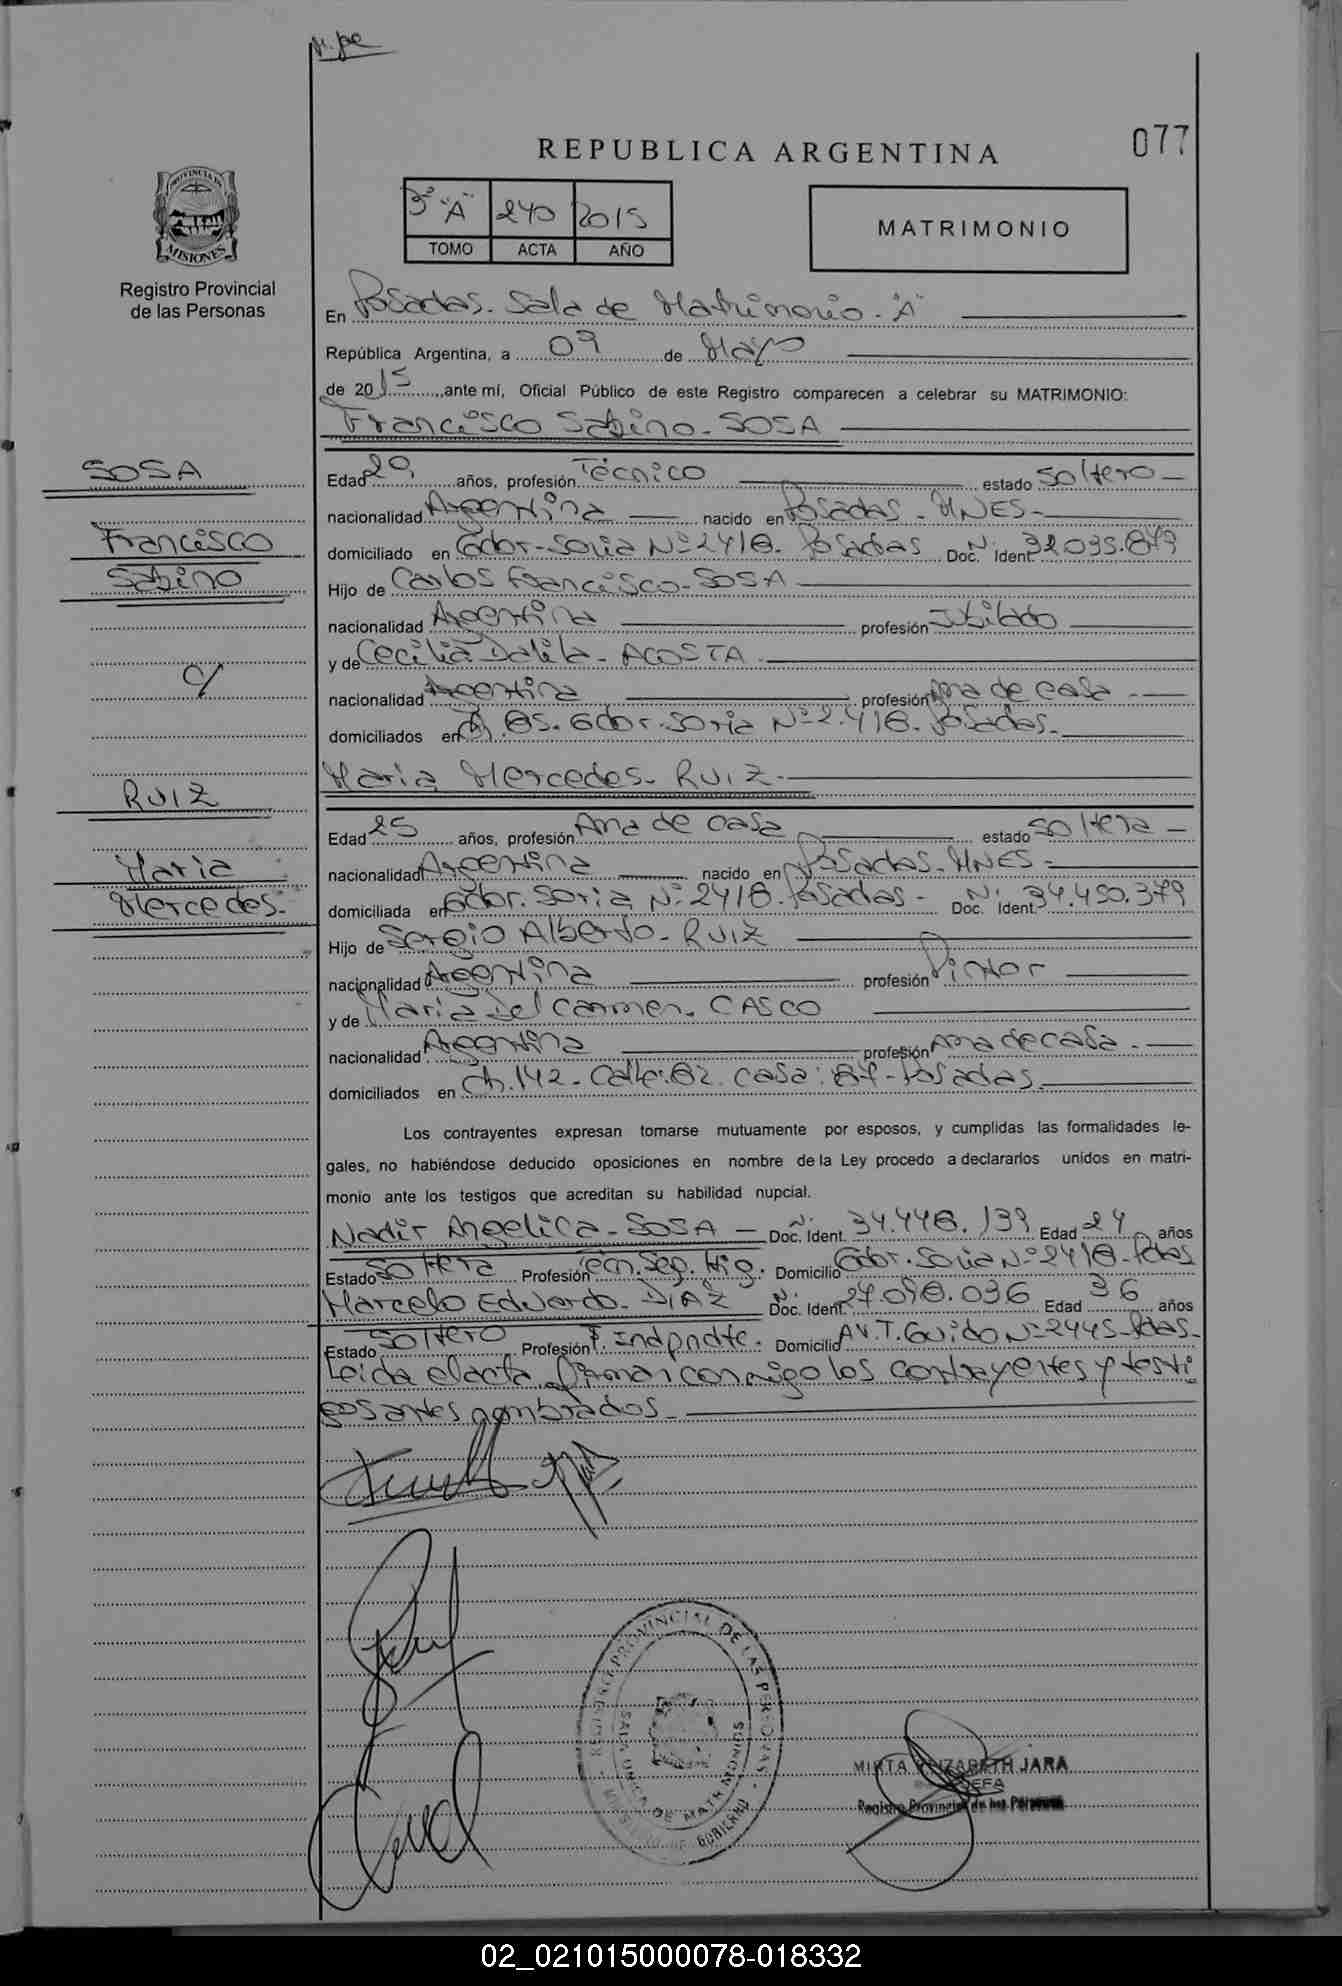 077
REPUBLICA ARGENTINA
3º "A" 240 2015
TOMO ACTA AÑO
MATRIMONIO
PROVINCIA DE MISIONES
Registro Provincial
de las Personas
En Posadas. Sala de Matrimonio. "A"
República Argentina, a 09 de Mayo
de 2015, ante mí, Oficial Público de este Registro comparecen a celebrar su MATRIMONIO:
Francisco Sabino. SOSA
SOSA
Francisco
Sabino
c/
RUIZ
Maria
Mercedes.
Edad 29 años, profesión Técnico estado Soltero
nacionalidad Argentina nacido en Posadas. MNES.
domiciliado en Gdor. Soria Nº 2418. Posadas Doc. Nº Ident. 32.035.879
Hijo de Carlos Francisco. SOSA
nacionalidad Argentina profesión Jubilado
y de Cecilia Dalila. ACOSTA
nacionalidad Argentina profesión Ama de casa
domiciliados en Gdor. Soria Nº 2.418. Posadas.
Maria Mercedes. RUIZ.
Edad 25 años, profesión Ama de casa estado Soltera
nacionalidad Argentina nacido en Posadas. MNES.
domiciliada en Gdor. Soria Nº 2418. Posadas. Doc. Nº Ident. 34.450.379
Hijo de Sergio Alberto. RUIZ
nacionalidad Argentina profesión Pintor
y de Maria Del Carmen. CASCO
nacionalidad Argentina profesión Ama de casa.
domiciliados en Ch. 142. Calle: 82. casa: 87. Posadas.
Los contrayentes expresan tomarse mutuamente por esposos, y cumplidas las formalidades le-
gales, no habiéndose deducido oposiciones en nombre de la Ley procedo a declararlos unidos en matri-
monio ante los testigos que acreditan su habilidad nupcial.
Nadir Angelica. SOSA Doc. Nº Ident. 34.448.139 Edad 24 años
Estado Soltera Profesión Tecn. Seg. Hig. Domicilio Gdor. Soria Nº 2418. Pdas
Marcelo Eduardo. DIAZ Doc. Nº Ident. 27.098.036 Edad 36 años
Estado Soltero Profesión T. Indpndte. Domicilio AV. T. Guido Nº 2445. Pdas.
Leida el acta firman conmigo los contrayentes y testi
gos antes nombrados.
REGISTRO PROVINCIAL DE LAS PERSONAS
SALA UNICA DE MATRIMONIOS
MINISTERIO DE GOBIERNO
MIRTA ELIZABETH JARA
JEFA
Registro Provincial de las Personas
02_021015000078-018332